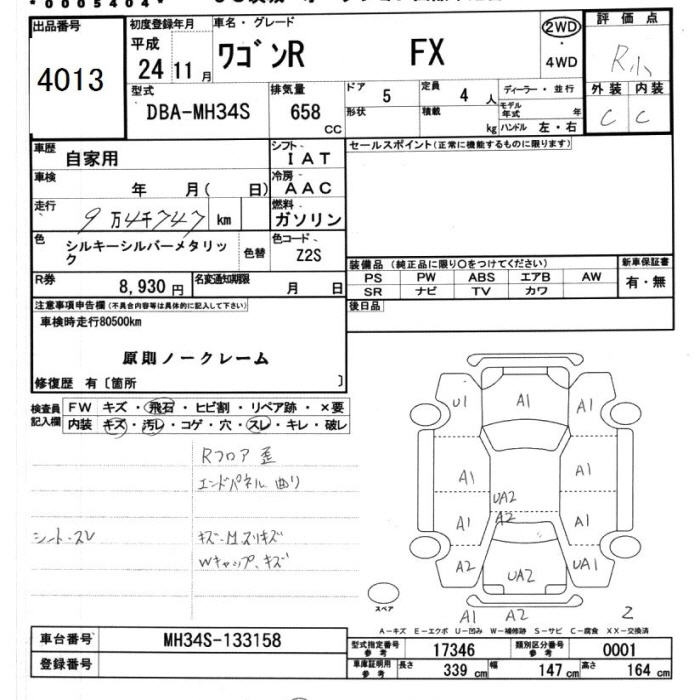 *0005404*
出品番号
4013
初度登録年月
平成
24 11 月
車名・グレード
ワゴンR FX
2WD
・
4WD
評価点
R小
外装 内装
C C
型式
DBA-MH34S
排気量
658 CC
ドア 5
定員 4 人
形状
積載 kg
ディーラー・並行
モデル年式 年
ハンドル 左・右
車歴 自家用
シフト IAT
セールスポイント(正常に機能するものに限ります)
車検 年 月( 日)
冷房 AAC
走行 9万4千747 km
燃料 ガソリン
色 シルキーシルバーメタリック
色替
色コード Z2S
R券 8,930 円
名変通知期限 月 日
装備品 (純正品に限り○をつけてください)
PS PW ABS エアB AW
SR ナビ TV カワ
新車保証書
有・無
後日品
注意事項申告欄(不具合内容等は具体的に記入して下さい)
車検時走行80500km
原則ノークレーム
修復歴 有〔箇所 〕
検査員記入欄
FW キズ・飛石・ヒビ割・リペア跡・×要
内装 キズ・汚レ・コゲ・穴・スレ・キレ・破レ
Rフロア 歪
エンドパネル 曲り
シート・スレ
キズ・凹 スリキズ
Wキャップ、キズ
U1 A1 A1
A1 A1
UA2
A1 A2 A1
A2 UA2 UA1
スペア
A1 A2 2
A-キズ E-エクボ U-凹み W-補修跡 S-サビ C-腐食 XX-交換済
車台番号 MH34S-133158
登録番号
型式指定番号 参考 17346
類別区分番号 参考 0001
車庫証明用 参考 長さ 339 cm 幅 147 cm 高さ 164 cm